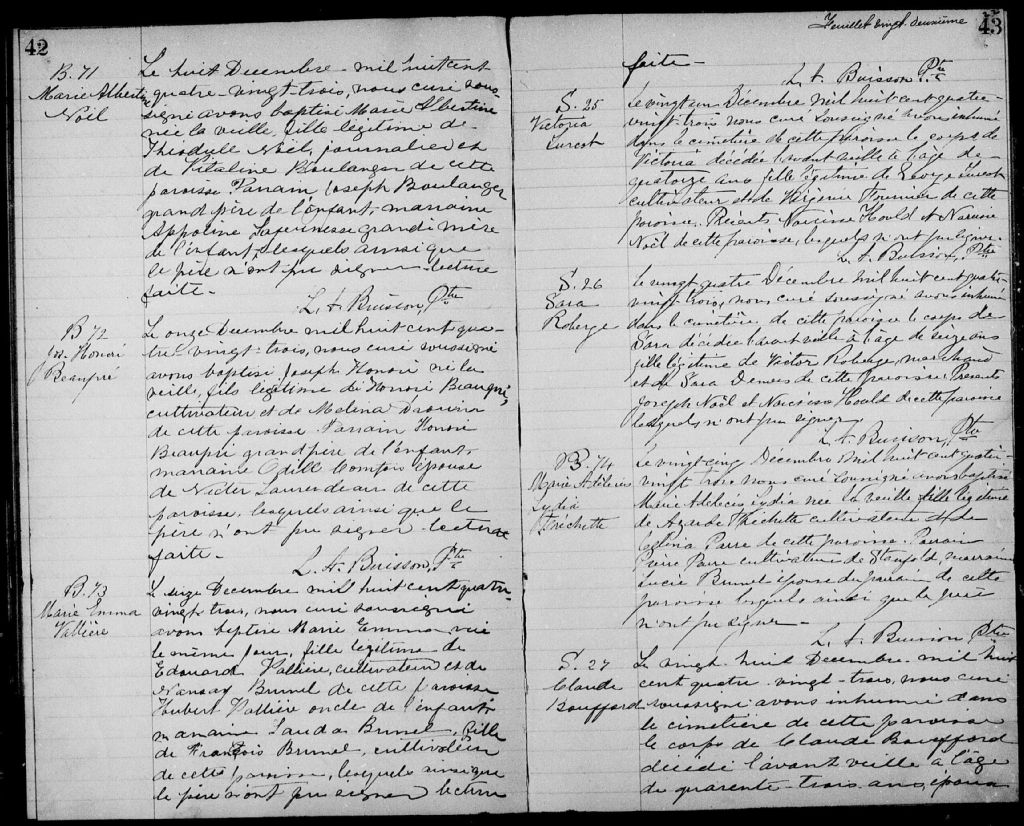 42
B. 71
Marie Albertine
Noël
Le huit Decembre mil huit cent
quatre-vingt-trois, nous curé sous-
signé avons baptisé Marie Albertine
née la veille, fille légitime de
Théodule Noël, journalier et
de Vitaline Boulanger de cette
paroisse Parrain Joseph Boulanger
grand père de l'enfant, marraine
Appoline Lajeunesse grand mère
de l'enfant, lesquels ainsi que
le père n'ont pu signer. lecture
faite.
L. A. Buisson, Ptre
B 72
Jos. Honoré
Beaupré
Le onze Decembre mil huit cent qua-
tre vingt-trois, nous curé soussigné
avons baptisé Joseph Honoré né la
veille, fils légitime de Honoré Beaupré,
cultivateur et de Melena Drouin
de cette paroisse Parrain Honoré
Beaupré grand père de l'enfant
marraine Odill Comtois épouse
de Victor Laurendeau de cette
paroisse, lesquels ainsi que le
père n'ont pu signer. lecture
faite.
L. A. Buisson, Ptre
B. 73
Marie Emma
Vallière
Le seize Decembre mil huit cent quatre-
vingt-trois, nous curé soussigné
avons baptisé Marie Emma née
le même jour, fille légitime de
Edouard Vallière, cultivateur et de
Nansay Brunel de cette paroisse
Hubert Vallière oncle de l'enfant
marraine Brunel, fille
de François Brunel, cultivateur
de cette paroisse, lesquels ainsi que
le père n'ont pu signer lecture
Feuillet vingt-deuxième
43
faite-
L. A. Buisson Ptre
S. 25
Victoria
Turcot
Le vingt un Décembre mil huit cent quatre-
vingt-trois nous curé soussigné avons inhumé
dans le cimetière de cette paroisse le corps de
Victoria décédée l'avant veille à l'âge de
quatorze ans fille légitime de George Turcot
cultivateur et de Virginie Fournier de cette
paroisse. Présents Narcisse Hould et Narcisse
Noël de cette paroisse, lesquels n'ont pu signer.
L. A. Buisson, Ptre
S. 26
Sara
Roberge
Le vingt quatre Décembre mil huit cent quatre-
vingt-trois, nous, curé soussigné avons inhumé
dans le cimetière de cette paroisse le corps de
Sara décédée l'avant veille à l'âge de seize ans
fille légitime de Victor Roberge, marchand
et de Sara Demers de cette paroisse. Présents
Joseph Noël et Narcisse Hould de cette paroisse
lesquels n'ont pu signer
L. A. Buisson, Ptre
B. 74
Marie Adelecia
Lydia
Frechette
Le vingt cinq Décembre mil huit cent quatre-
vingt trois nous curé soussigné avons baptisé
Marie Adelecia Lydia née la veille, fille légitime
de Azarde Frechette cultivateur et de
Célina Parre de cette paroisse. Parrain
Pierre Parre cultivateur de Stanfold marraine
Lucie Brunel épouse du parrain de cette
paroisse lesquels ainsi que le père
n'ont pu signer-
L. A. Buisson, Ptre
S. 27
Claude
Bouffard
Le vingt-huit Decembre mil huit
cent quatre-vingt-trois, nous curé
soussigné avons inhumé dans
le cimetière de cette paroisse
le corps de Claude Bouffard
décédé l'avant veille à l'âge
de quarente-trois ans, époux